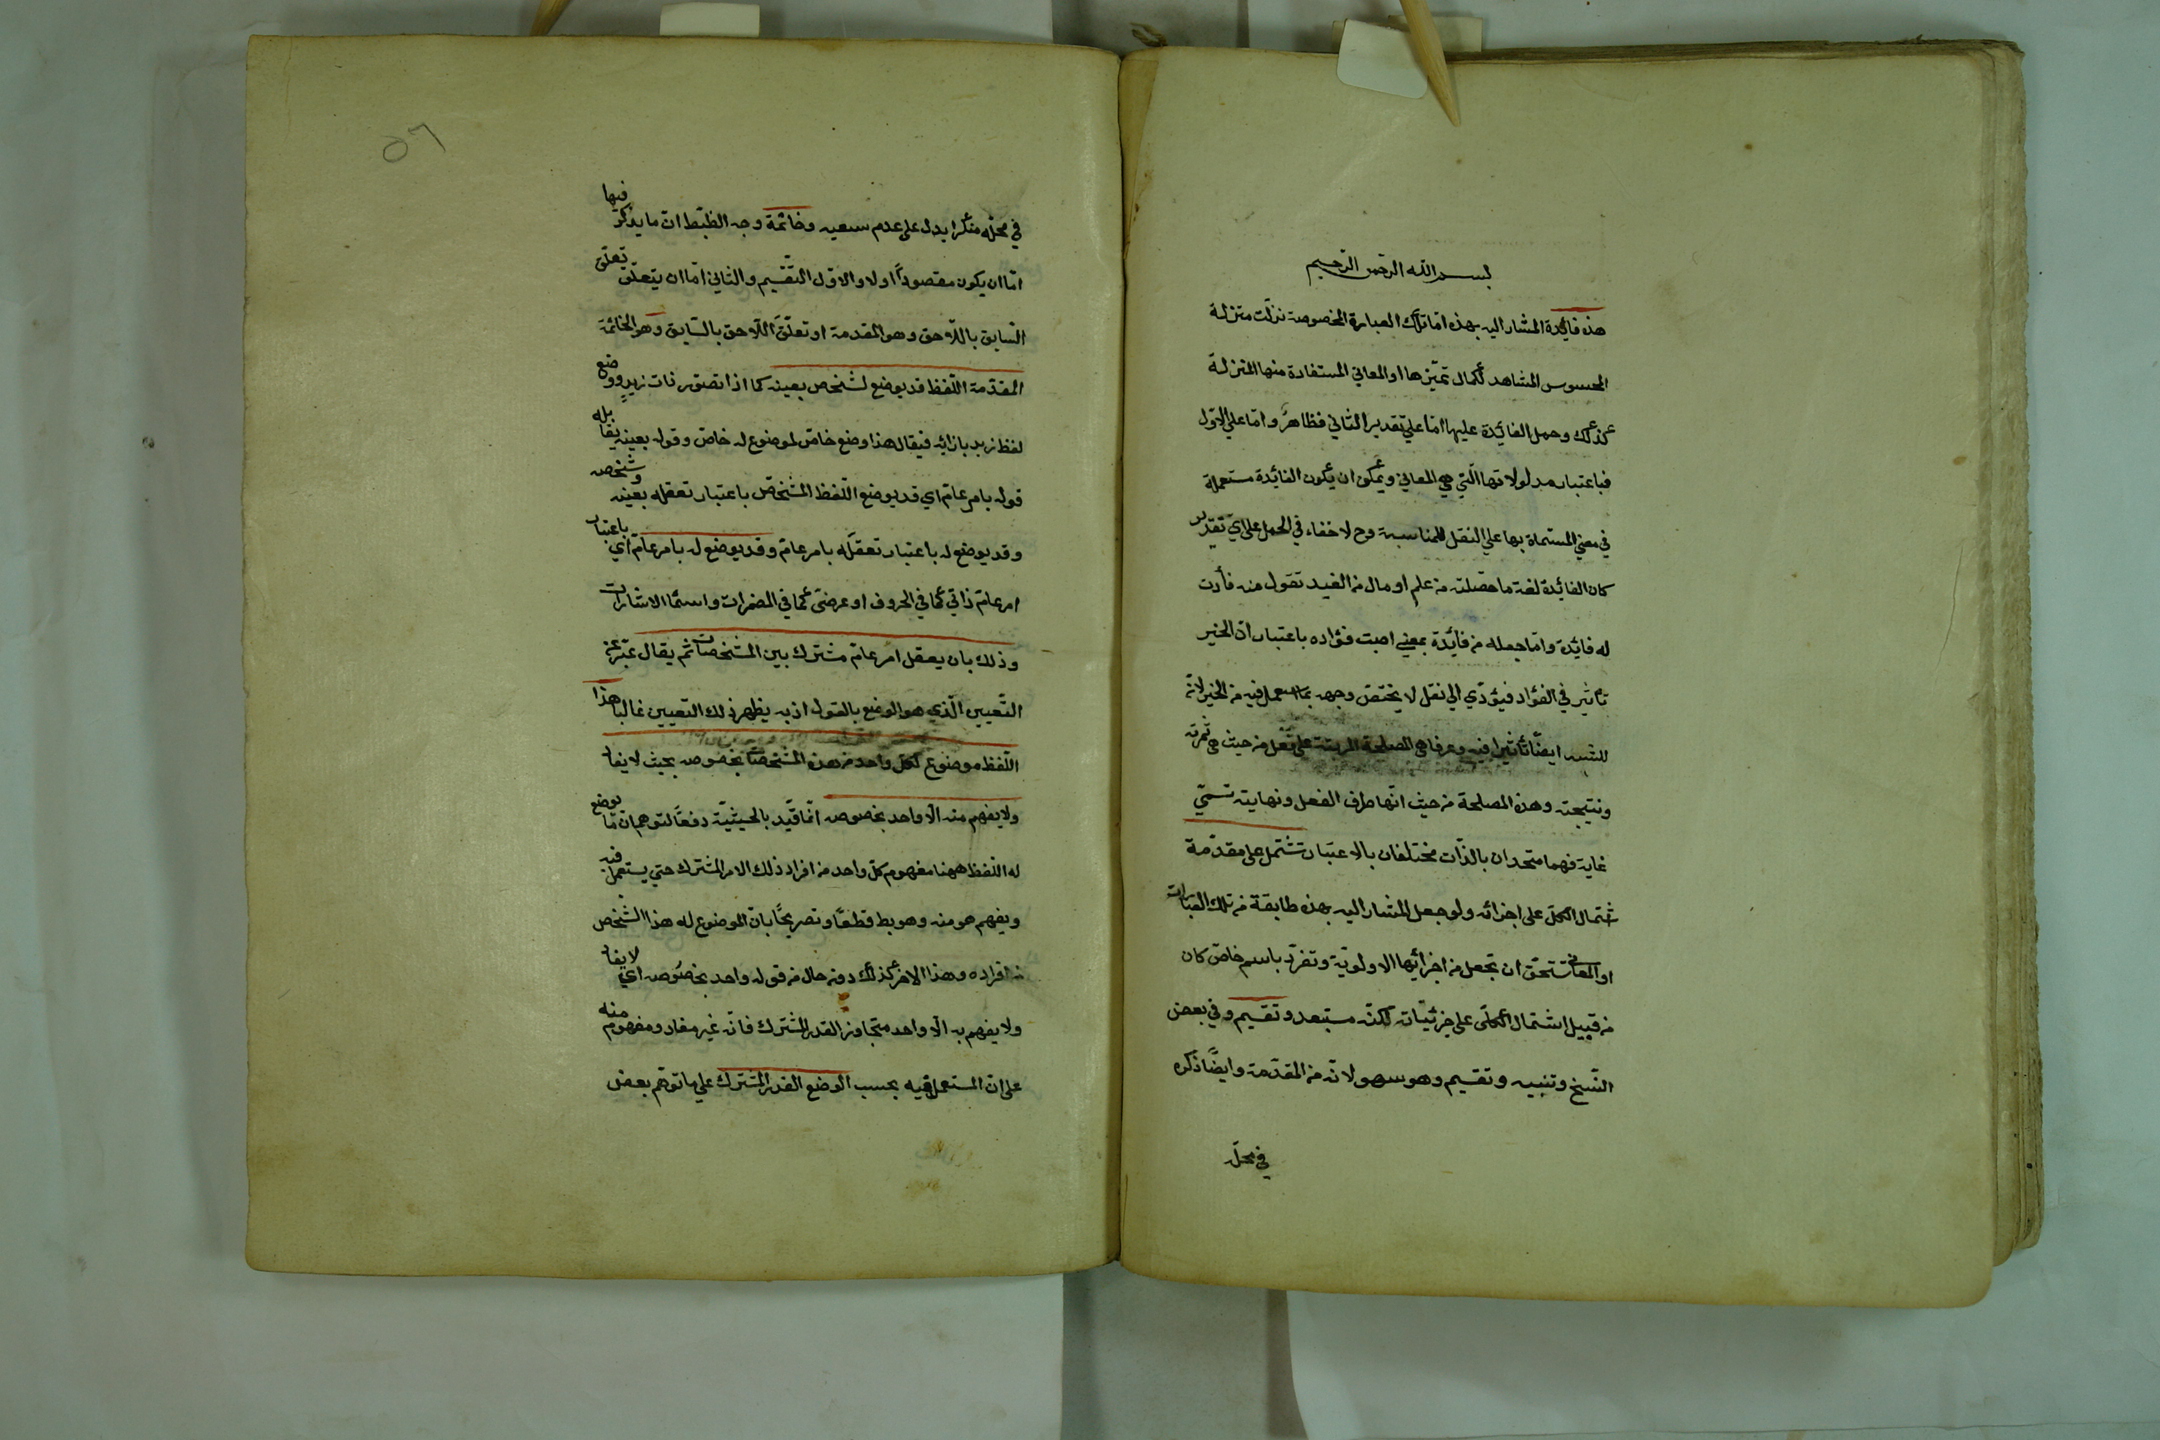 بسم الله الرحمن الرحيم
هذه فائدة المشار اليه بهذه امّا تلك العبارة المخصوصة نزلت منزلة
المحسوس المشاهد لكمال تميّزها او المعاني المستفادة منها المنزلة
كذلك وحمل الفائدة عليها امّا علي تقدير الثاني فظاهر وامّا علي الاوّل
فباعتبار مدلولاتها الّتي هي المعاني ويمكن ان يكون الفائدة مستعملة
في معني المستماة بها علي النقل للمناسبة وح لا خفاء في الحمل علي ايّ تقدير
كان الفائدة لغة ما حصّلته من علم او مال من الفيد تقول منه فأدت
له فائدة وامّا جعله من فائدة بمعني اصبت فؤاده باعتبار انّ الخبر
تأثير في الفؤاد فيؤدّي الي نقل لا يختصّ وجهه بما استعمل فيه من الخير لانّ
للشـر ايضًا تأثيرا فيه وعرفا هي المصلحة المرتبة علي فعل من حيث هي ثمرته
ونتيجته وهذه المصلحة من حيث انّها طرف الفعل ونهايته تسمّي
غاية فهما متحدان بالذّات مختلفان بالاعتبار تشتمل علي مقدّمة
شتمال الكلّ علي اجزائه ولو جعل المشار اليه بهذه طايفة من تلك العبارات
او المعاني تستحقّ ان تجعل من اجزائها الاولوية وتفرّد باسم خاصّ كان
من قبيل اشتمال الكلّي علي جزئيّاته لكنّه مستبعد وتقسيم وفي بعض
النّسخ وتنبيه وتقسيم وهو سهو لانّه من المقدّمة وايضًا ذكره
في محلّ
٥٦
في محلّه منكرا يدل علي عدم سبقه وخاتمة وجه الضّبط انّ ما يذكر فيها
امّا ان يكون مقصودًا اولا والاوّل التّقسيم والثاني امّا ان يتعلّق تعلّق
السّابق باللّاحق وهو المقدمة او تعلّق اللّاحق بالسّابق وهو الخاتمة
المقدّمة اللّفظ قد يوضع لشخص بعينه كما اذا تصوّر ذات زيد ووضع
لفظ زيد بازائه فيقال هذا وضع خاصّ لموضوع له خاصّ وقوله بعينه يقابله
قوله بامر عامّ اي قد يوضع اللّفظ المشخّص باعتبار تعقله بعينه وشخصه
وقد يوضع له باعتبار تعقلّه بامر عامّ وقد يوضع له بامر عامّ اي باعتبار
امر عامّ ذاتي كما في الحروف او عرضي كما في المضمرات واسماء الاشارات
وذلك بان يعقل امر عامّ مشترك بين المشخصات ثم يقال عبّر عن
التّعيين الّذي هو الوضع بالقول اذ به يظهر ذلك التعيين غالبا هذا
اللّفظ موضوع لكلّ واحد من هذه المشخّصات بخصوصه بحيث لا يفاد
ولا يفهم منه الّا واحد بخصوصه انّما قيّد بالحيثيّة دفعًا لتوهم ان ما يوضع
له اللّفظ ههنا مفهوم كلّ واحد من افراد ذلك الامر المشترك حتي يستعمل فيه
ويفهم هو منه وهو بط قطعًا وتصريحًا بانّ الموضوع له هذا الشّخص
من افراده وهذا الاخر كذلك دونه حال من قوله واحد بخصُوصه اي لا يفاد
ولا يفهم به الّا واحد متجاوز القدر المشترك فانّه غير مفاد ومفهوم منه
علي انّ المستعمل فيه بحسب الوضع القدر المشترك علي ما توهّم بعض